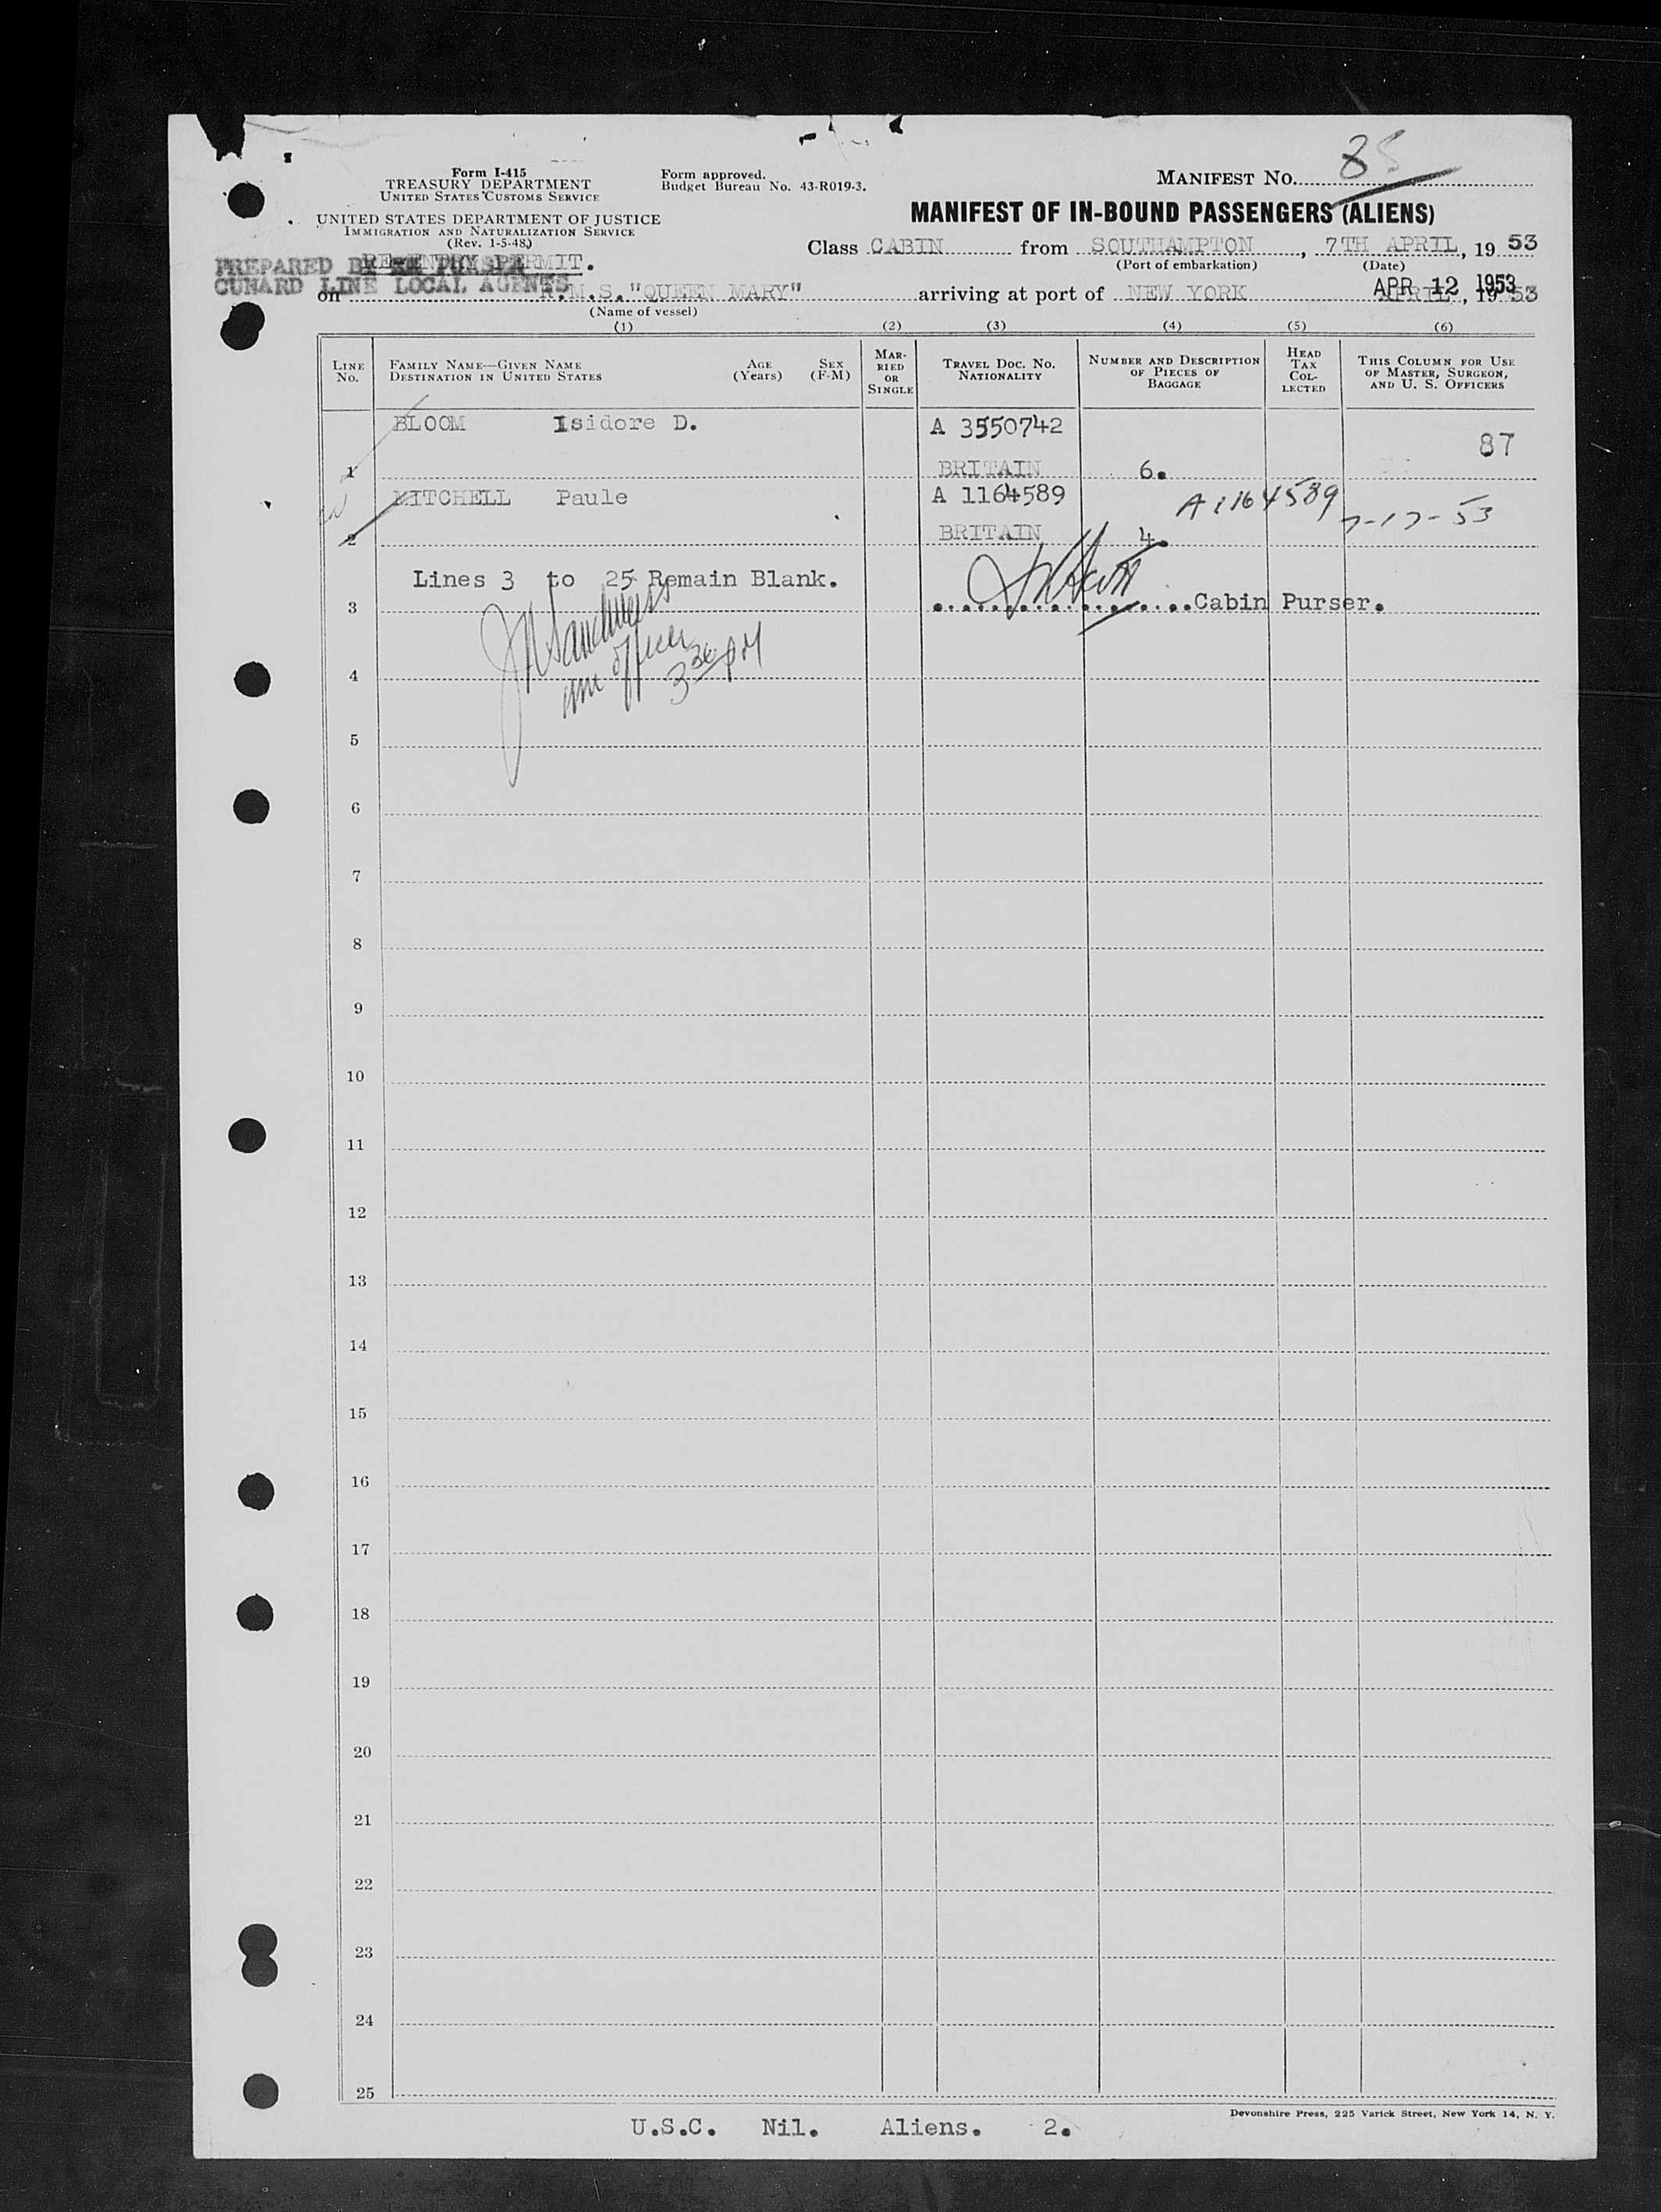 Form I-415
TREASURY DEPARTMENT
UNITED STATES CUSTOMS SERVICE
UNITED STATES DEPARTMENT OF JUSTICE
IMMIGRATION AND NATURALIZATION SERVICE
(Rev. 1-5-48)
Form approved.
Budget Bureau No. 43-R019-3.
MANIFEST NO. 85
MANIFEST OF IN-BOUND PASSENGERS (ALIENS)
Class CABIN from SOUTHAMPTON, 7TH APRIL, 1953
(Port of embarkation) (Date)
PREPARED BY
RE-ENTRY PERMIT.
CUNARD LINE LOCAL AGENTS
on R.M.S. "QUEEN MARY" arriving at port of NEW YORK APR 12 1953 APRIL, 1953
(Name of vessel)
(1) (2) (3) (4) (5) (6)
LINE No.
FAMILY NAME—GIVEN NAME
DESTINATION IN UNITED STATES
AGE (Years)
SEX (F-M)
MARRIED OR SINGLE
TRAVEL DOC. NO. NATIONALITY
NUMBER AND DESCRIPTION OF PIECES OF BAGGAGE
HEAD TAX COLLECTED
THIS COLUMN FOR USE OF MASTER, SURGEON, AND U. S. OFFICERS
BLOOM Isidore D. A 3550742 87
1 BRITAIN 6.
MITCHELL Paule A 1164589 A1164589 7-17-53
2 BRITAIN 4.
Lines 3 to 25 Remain Blank.
3 ..................Cabin Purser.
imm officer
3 30 PM
4
5
6
7
8
9
10
11
12
13
14
15
16
17
18
19
20
21
22
23
24
25
Devonshire Press, 225 Varick Street, New York 14, N. Y.
U.S.C. Nil. Aliens. 2.